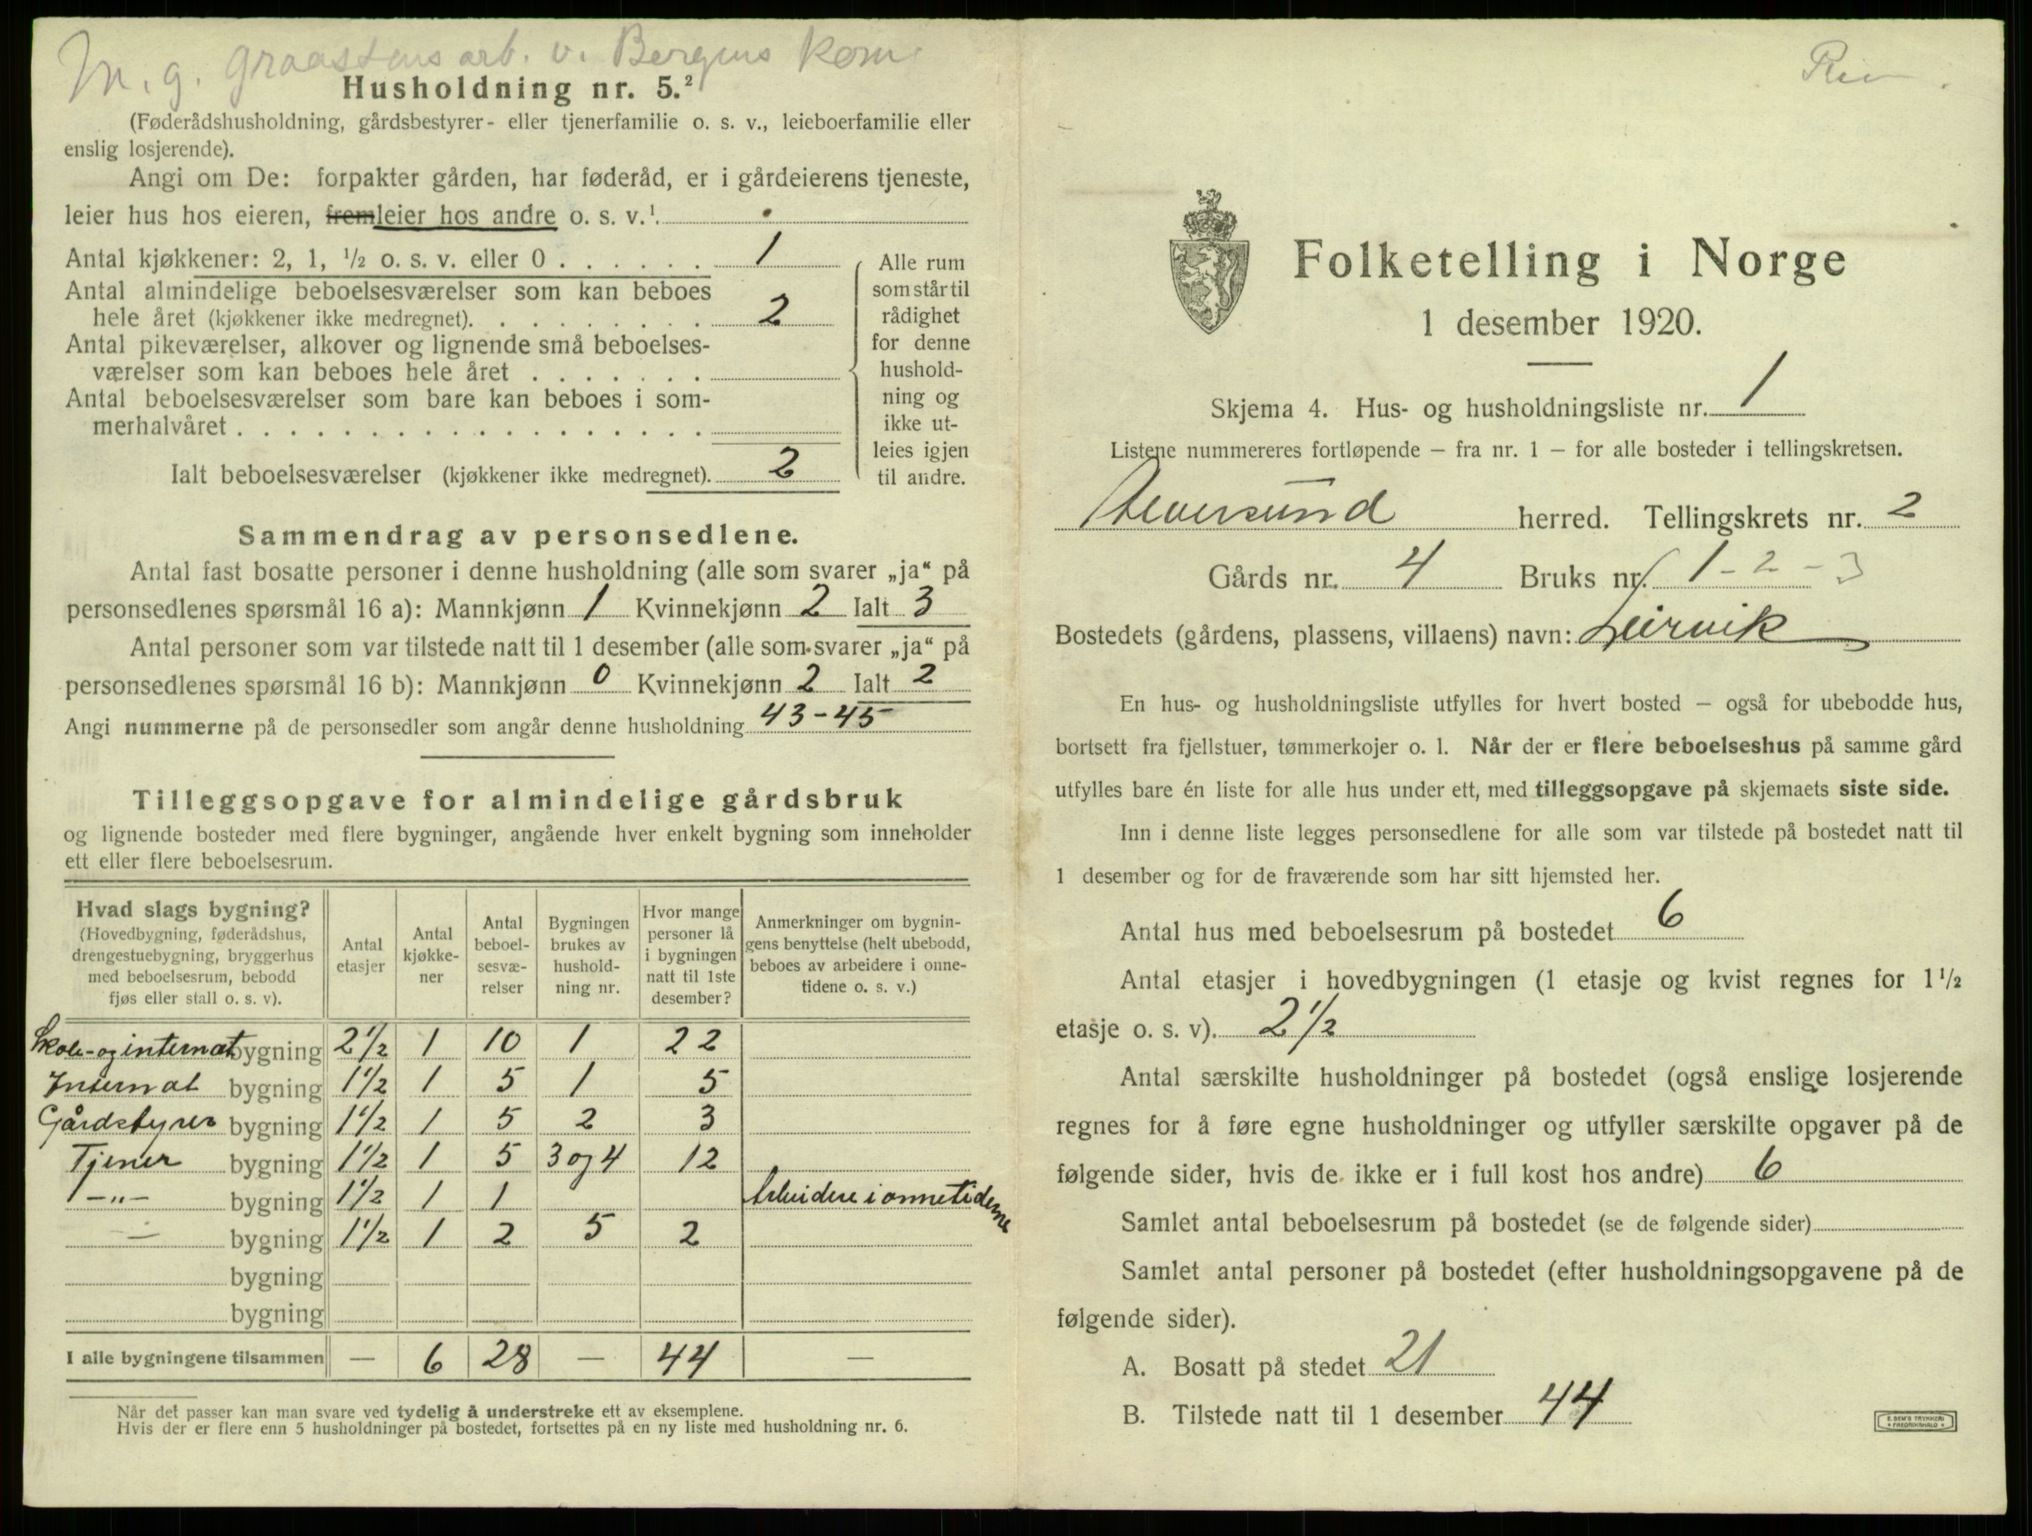 M. g. graastens arb. v. Bergens Kom.
Husholdning nr. 5.²
(Føderådshusholdning, gårdsbestyrer- eller tjenerfamilie o. s. v., leieboerfamilie eller
enslig losjerende).
Angi om De: forpakter gården, har føderåd, er i gårdeierens tjeneste,
leier hus hos eieren, fremleier hos andre o. s. v.¹
Antal kjøkkener: 2, 1, ½ o. s. v. eller 0 . . . . . . 1
Antal almindelige beboelsesværelser som kan beboes
hele året (kjøkkener ikke medregnet). . . . . . . . . 2
Antal pikeværelser, alkover og lignende små beboelses-
værelser som kan beboes hele året . . . . . . .
Antal beboelsesværelser som bare kan beboes i som-
merhalvåret . . . . . . . . . . . . . . . . . .
Ialt beboelsesværelser (kjøkkener ikke medregnet). 2
Alle rum
som står til
rådighet
for denne
hushold-
ning og
ikke ut-
leies igjen
til andre.
Sammendrag av personsedlene.
Antal fast bosatte personer i denne husholdning (alle som svarer „ja“ på
personsedlenes spørsmål 16 a): Mannkjønn 1 Kvinnekjønn 2 Ialt 3
Antal personer som var tilstede natt til 1 desember (alle som svarer „ja“ på
personsedlenes spørsmål 16 b): Mannkjønn 0 Kvinnekjønn 2 Ialt 2
Angi nummerne på de personsedler som angår denne husholdning 43-45
Tilleggsopgave for almindelige gårdsbruk
og lignende bosteder med flere bygninger, angående hver enkelt bygning som inneholder
ett eller flere beboelsesrum.
Hvad slags bygning?
(Hovedbygning, føderådshus,
drengestuebygning, bryggerhus
med beboelsesrum, bebodd
fjøs eller stall o. s. v).
Antal
etasjer
Antal
kjøkke-
ner
Antal
beboel-
sesvæ-
relser
Bygningen
brukes av
hushold-
ning nr.
Hvor mange
personer lå
i bygningen
natt til 1ste
desember?
Anmerkninger om bygnin-
gens benyttelse (helt ubebodd,
beboes av arbeidere i onne-
tidene o. s. v.)
Skole- og internat bygning 2½ 1 10 1 22
Internat bygning 1½ 1 5 1 5
Gårdstyrer bygning 1½ 1 5 2 3
Tjener bygning 1½ 1 5 3 og 4 12
-"- bygning 1½ 1 1 Arbeidere i onnetiderne
- bygning 1½ 1 2 5 2
bygning
bygning
I alle bygningene tilsammen — 6 28 — 44 —
Når det passer kan man svare ved tydelig å understreke ett av eksemplene.
Hvis der er flere enn 5 husholdninger på bostedet, fortsettes på en ny liste med husholdning nr. 6.
Folketelling i Norge
1 desember 1920.
Skjema 4. Hus- og husholdningsliste nr. 1
Listene nummereres fortløpende – fra nr. 1 – for alle bosteder i tellingskretsen.
Alversund herred. Tellingskrets nr. 2
Gårds nr. 4 Bruks nr. 1-2-3
Bostedets (gårdens, plassens, villaens) navn: Leirvik
En hus- og husholdningsliste utfylles for hvert bosted – også for ubebodde hus,
bortsett fra fjellstuer, tømmerkojer o. l. Når der er flere beboelseshus på samme gård
utfylles bare én liste for alle hus under ett, med tilleggsopgave på skjemaets siste side.
Inn i denne liste legges personsedlene for alle som var tilstede på bostedet natt til
1 desember og for de fraværende som har sitt hjemsted her.
Antal hus med beboelsesrum på bostedet 6
Antal etasjer i hovedbygningen (1 etasje og kvist regnes for 1½
etasje o. s. v). 2½
Antal særskilte husholdninger på bostedet (også enslige losjerende
regnes for å føre egne husholdninger og utfyller særskilte opgaver på de
følgende sider, hvis de ikke er i full kost hos andre) 6
Samlet antal beboelsesrum på bostedet (se de følgende sider)
Samlet antal personer på bostedet (efter husholdningsopgavene på de
følgende sider).
A. Bosatt på stedet 21
B. Tilstede natt til 1 desember 44
E. SEM'S TRYKKERI
FREDRIKSHALD